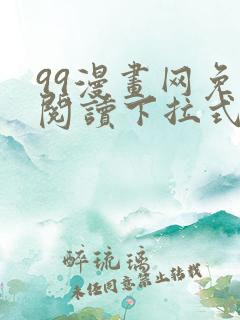 99漫畫网免
閱讀下拉式
醉琉璃
未经同意禁止转载